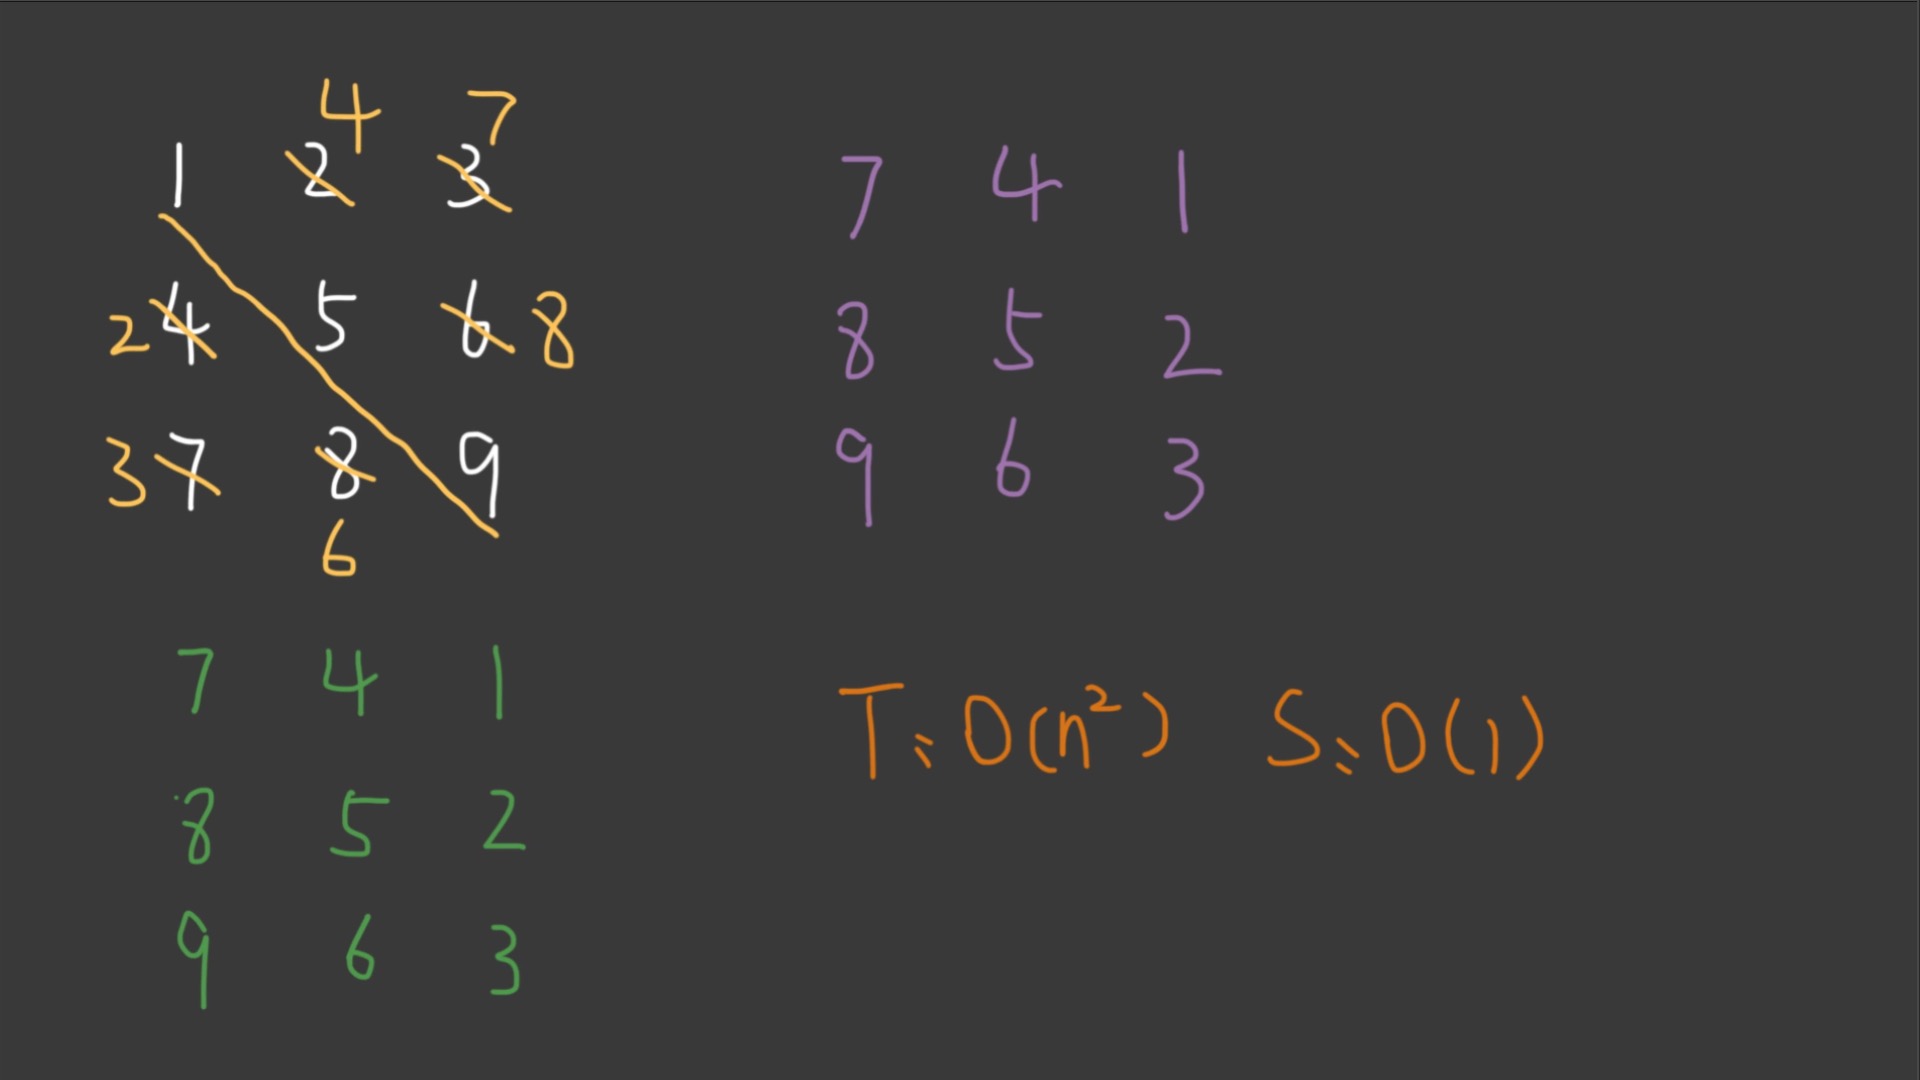 4 7
1 2 3
2 4 5 6 8
3 7 8 9
6
7 4 1
8 5 2
9 6 3
7 4 1
8 5 2
9 6 3
T: O(n²) S: O(1)